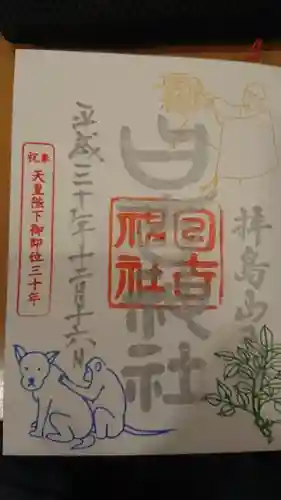 拝島山
日吉神社
日吉神社
平成三十年十二月十六日
奉祝
天皇陛下御即位三十年